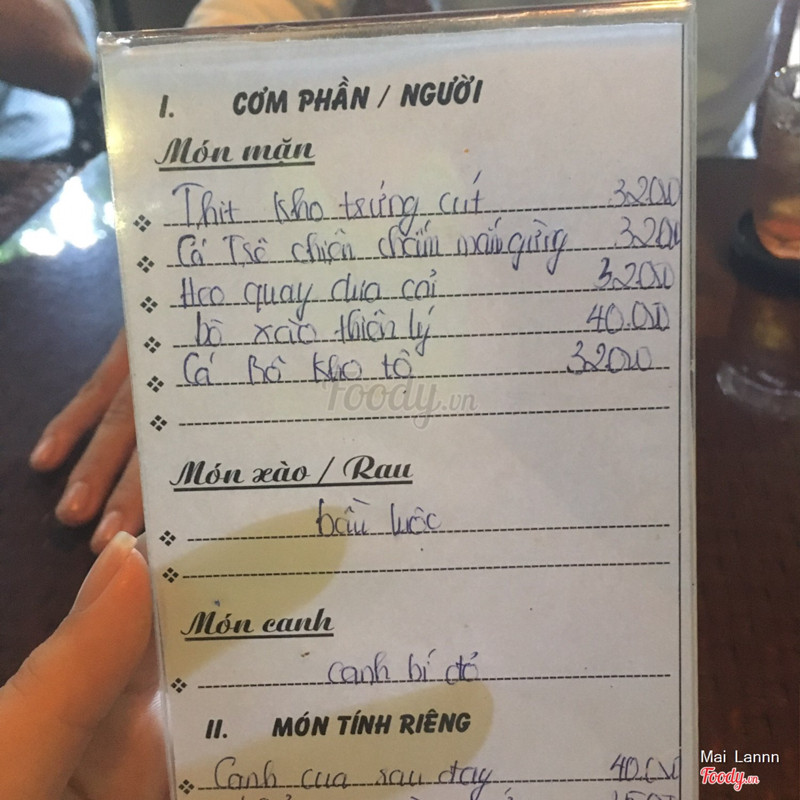 I. CƠM PHẦN / NGƯỜI
Món mặn
Thịt kho trứng cút 32000
Cá Trê chiên chấm mắm gừng 3200
Heo quay dưa cải 32000
bò xào thiên lý 40.000
Cá Rô kho tộ 32000
foody.vn
Món xào / Rau
bầu luộc
Món canh
canh bí đỏ
II. MÓN TÍNH RIÊNG
Canh cua rau đay 40.000
Mai Lannn
Foody.vn